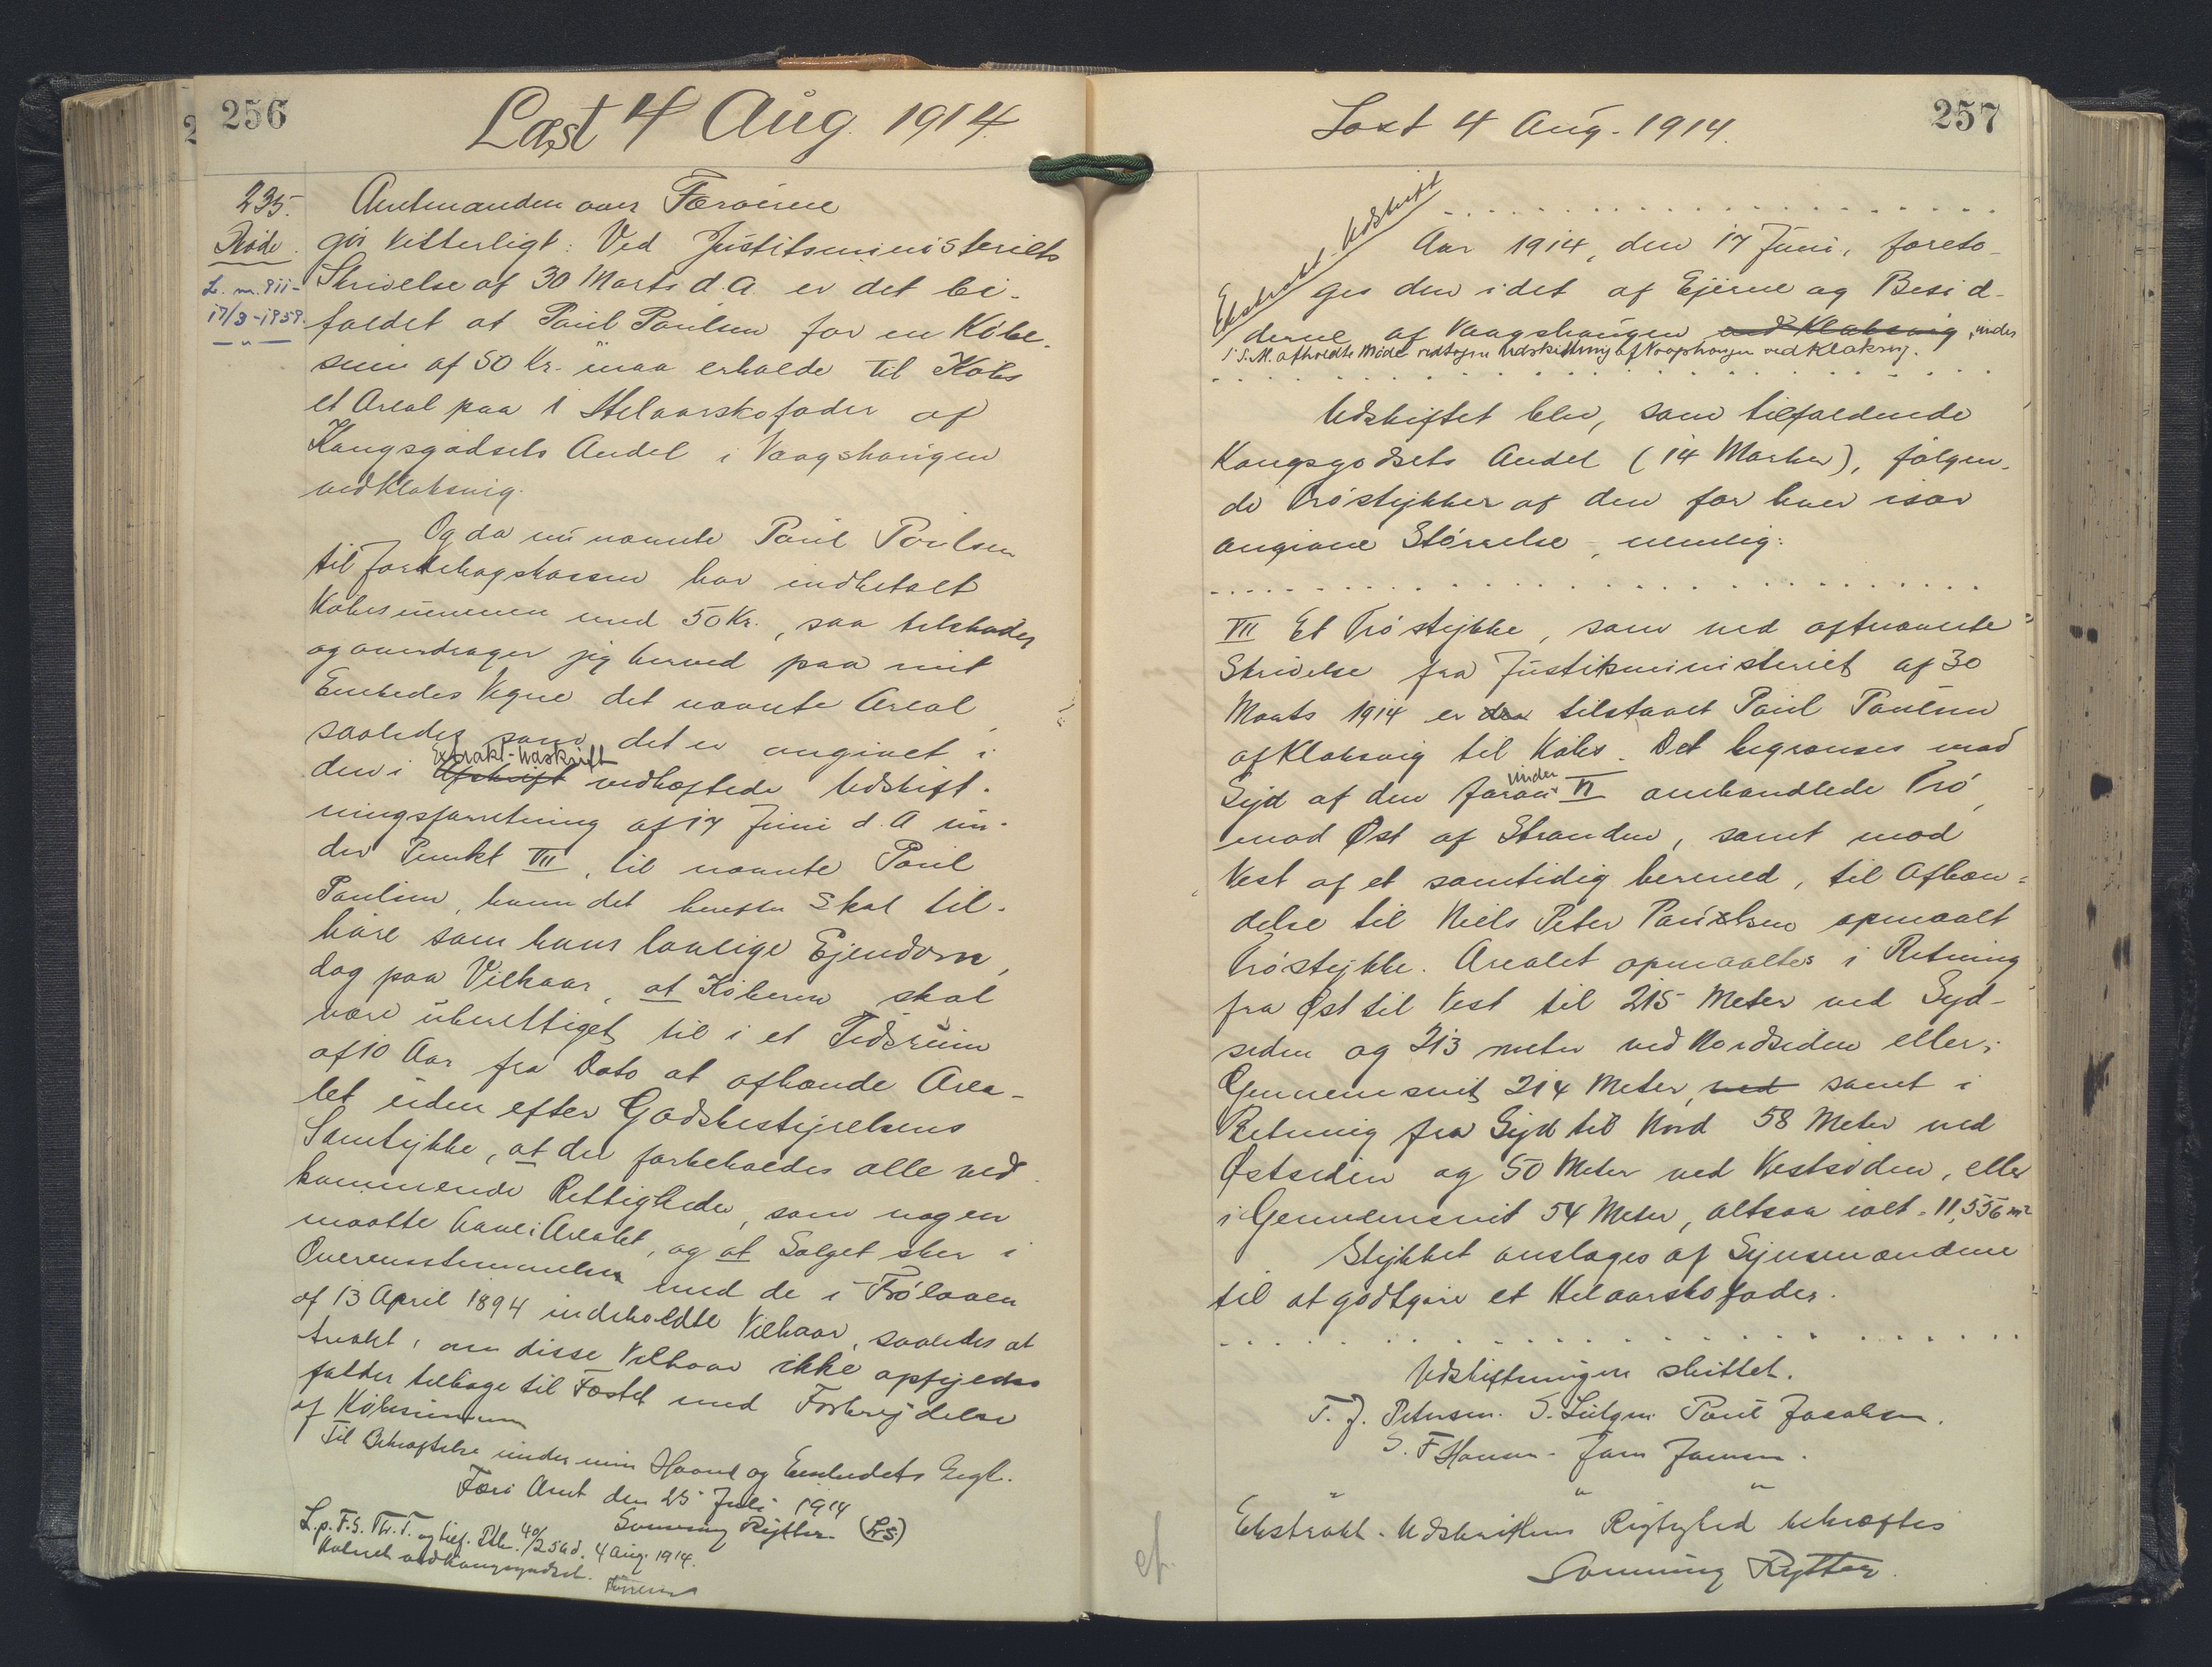 256
Læst 4 Aug. 1914.
235.
Skøde.
L. nr. 811-
17/3-1958.
Amtmanden over Færøerne
gør vitterligt: Ved Justitsministeriets
Skrivelse af 30 Marts d.A. er det bi-
faldet at Poul Poulsen for en Købe-
sum af 50 Kr. maa erholde til Købs
et Areal paa 1 Helaarskofoder af
Kongsgodsets Andel i Vaagshaugen
ved Klaksvig.
Og da nu nævnte Poul Poulsen
til Jordebogskassen har indbetalt
Købesummen med 50 Kr., saa tilskøder
og overdrager jeg herved paa mit
Embedes Vegne det nævnte Areal,
saaledes som det er angivet i
den i Afskrift Extrakt-Udskrift vedhæftede Udskift-
ningsforretning af 17 Juni d.A un-
der Punkt VII, til nævnte Poul
Poulsen, hvem det herefter skal til-
høre som hans lovlige Ejendom,
dog paa Vilkaar, at Køberen skal
være uberettiget til i et Tidsrum
af 10 Aar fra Dato at afhænde Area-
let uden efter Godsbestyrelsens
Samtykke, at der forbeholdes alle ved-
kommende Rettigheder, som nogen
maatte have i Arealet, og at Salget sker i
Overensstemmelse med de i Trøloven
af 13 April 1894 indeholdte Vilkaar, saaledes at
trøet, om disse Vilkaar ikke opfyldes
falder tilbage til Fæstet med Fortrydelse
af Købesummen
Til Bekræftelse under min Haand og Embedets Segl.
Færø Amt den 25 Juli 1914
Sømming Rytter (L.S.)
L.p. F.S. Th. T. og tief. Rtb. 40/256 d. 4 Aug. 1914.
Noteret ved Kongsgodset.
257
Læst 4 Aug. 1914.
Ekstrakt-Udskrift
Aar 1914, den 17 Juni, foreto-
ges den i det af Ejerne og Besid-
derne af Vaagshaugen ved Klaksvig, under
i S.M. afholdte Møde vedtagne Udskiftning af Vaagshaugen ved Klaksvig.
Udskiftet blev, som tilfaldende
Kongsgodsets Andel (14 Marker), følgen-
de Trøstykker af den for hver især
angivne Størrelse, nemlig:
VII Et Trøstykke, som ved oftnævnte
Skrivelse fra Justitsministeriet af 30
Marts 1914 er den tilstaaet Poul Poulsen
af Klaksvig til Købs. Det begrænses mod
Syd af den foran under VI omhandlede Trø,
mod Øst af Stranden, samt mod
Vest af et samtidig hermed, til Afhæn-
delse til Niels Peter Poulsen opmaalt
Trøstykke. Arealet opmaaltes i Retning
fra Øst til Vest til 215 Meter ved Syd-
siden og 213 meter ved Nordsiden eller i
Gennemsnit 214 Meter, ved samt i
Retning fra Syd til Nord 58 Meter ved
Østsiden og 50 Meter ved Vestsiden, eller
i Gennemsnit 54 Meter, altsaa ialt = 11,556 m²
Stykket ansloges af Synsmændene
til at godtgøre et Helaarskofoder.
Udskiftningen sluttet.
T. J. Petersen. S. Lützen. Poul Jacobsen.
S. F Hansen. Joen Joensen.
Ekstrakt-Udskriftens Rigtighed bekræftes
Sømming Rytter.